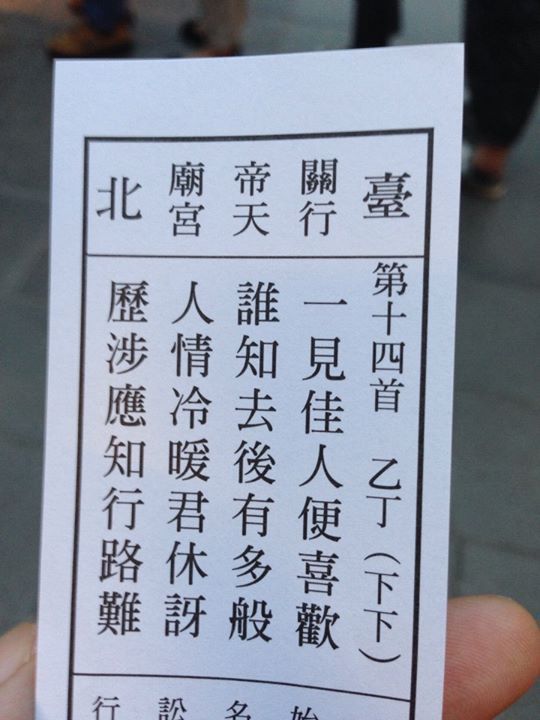 臺
關帝廟
行天宮
北
第十四首 乙丁(下下)
一見佳人便喜歡
誰知去後有多般
人情冷暖君休訝
歷涉應知行路難
始
名
訟
行